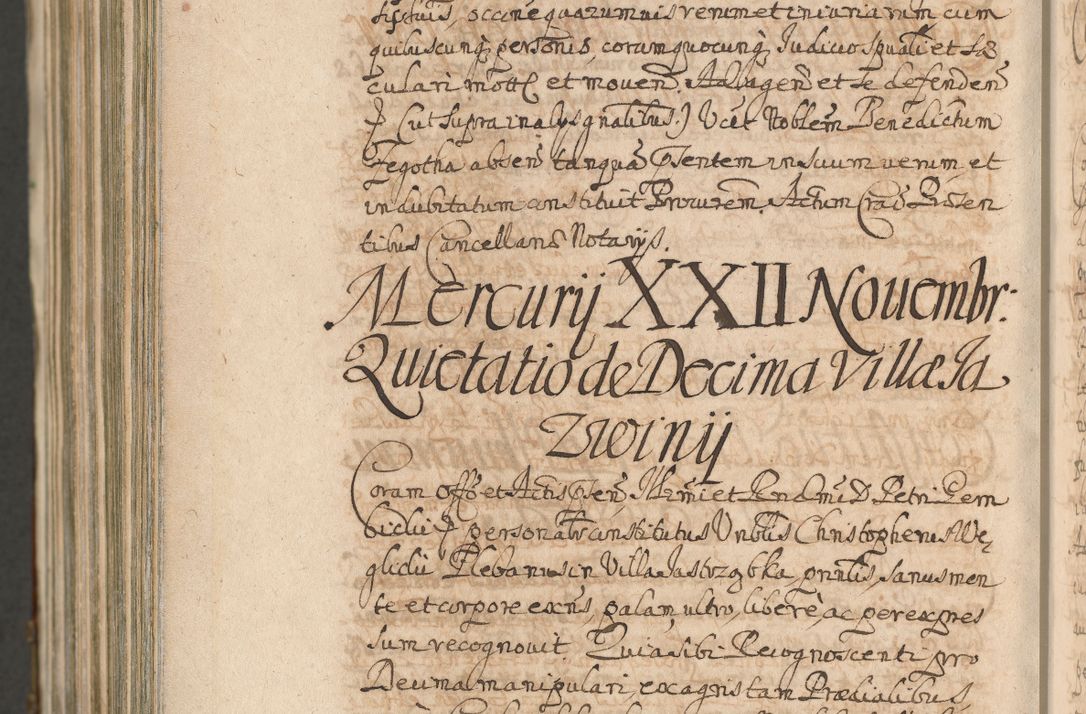 tiphuis, occone quarumuis rerum et iniuriarum cum
quibuscunq personis, coram quocunq Iudicio spuali et sæ
culari mott et mouen. Ad agen et se defenden
(ut supra in alys gnalibus:) Ucit Noblem Benedictum
Zegotha absen tanqua psentem in suum verum et
indubitatum constituit Procurem. Actum Crac Præsen
tibus Cancellariæ Notarijs.
Mercurij XXII Nouembr:
Quietatio de Decima Villæ Ja
zwinij
Coram offo et Actis psen, Illmi et Rndmi D. Petri Gem
bicki personalr constitutus Vnblis Christopherus We
glicki Plebanus in Villa Jastrząbka, pnntis, sanus men
te et corpore exns, palam, ultro, libere, ac per expres
sum recognouit. Quia sibi Recognoscenti pro
Decima manipulari, ex agris tam Prædialibus,